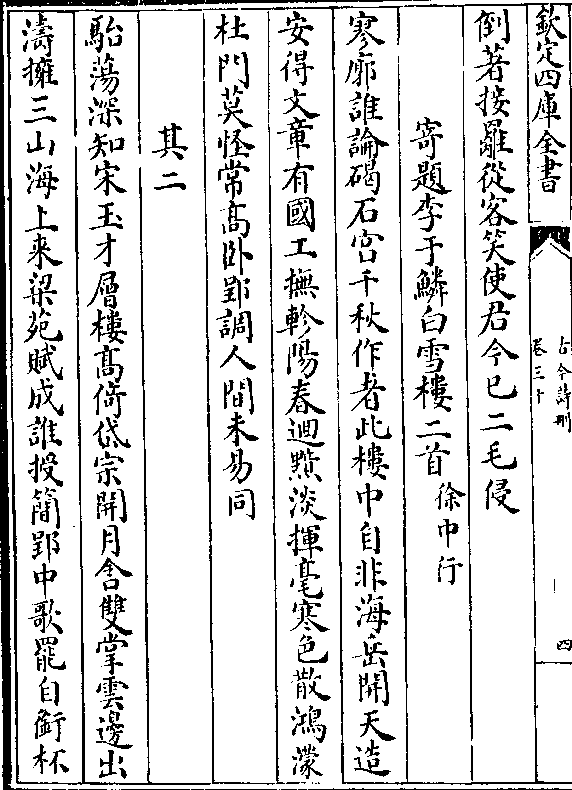 欽定四庫全書
古今詩刪
卷三十
四
倒著接䍦從客笑使君今已二毛侵
寄題李于鱗白雪樓二首 徐中行
寥廓誰論碣石宫千秋作者此樓中自非海岳開天造
安得文章有國工撫軫陽春迴黯淡揮毫寒色散鴻濛
杜門莫怪常髙卧郢調人間未易同
其二
駘蕩深知宋玉才層樓髙倚岱宗開月含雙掌雲邊出
濤擁三山海上来梁苑賦成誰授簡郢中歌罷自銜杯